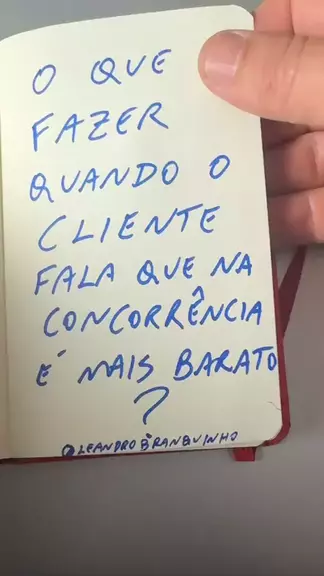 O QUE
FAZER
QUANDO O
CLIENTE
FALA QUE NA
CONCORRÊNCIA
É MAIS BARATO
?
@LEANDROBRANQUINHO